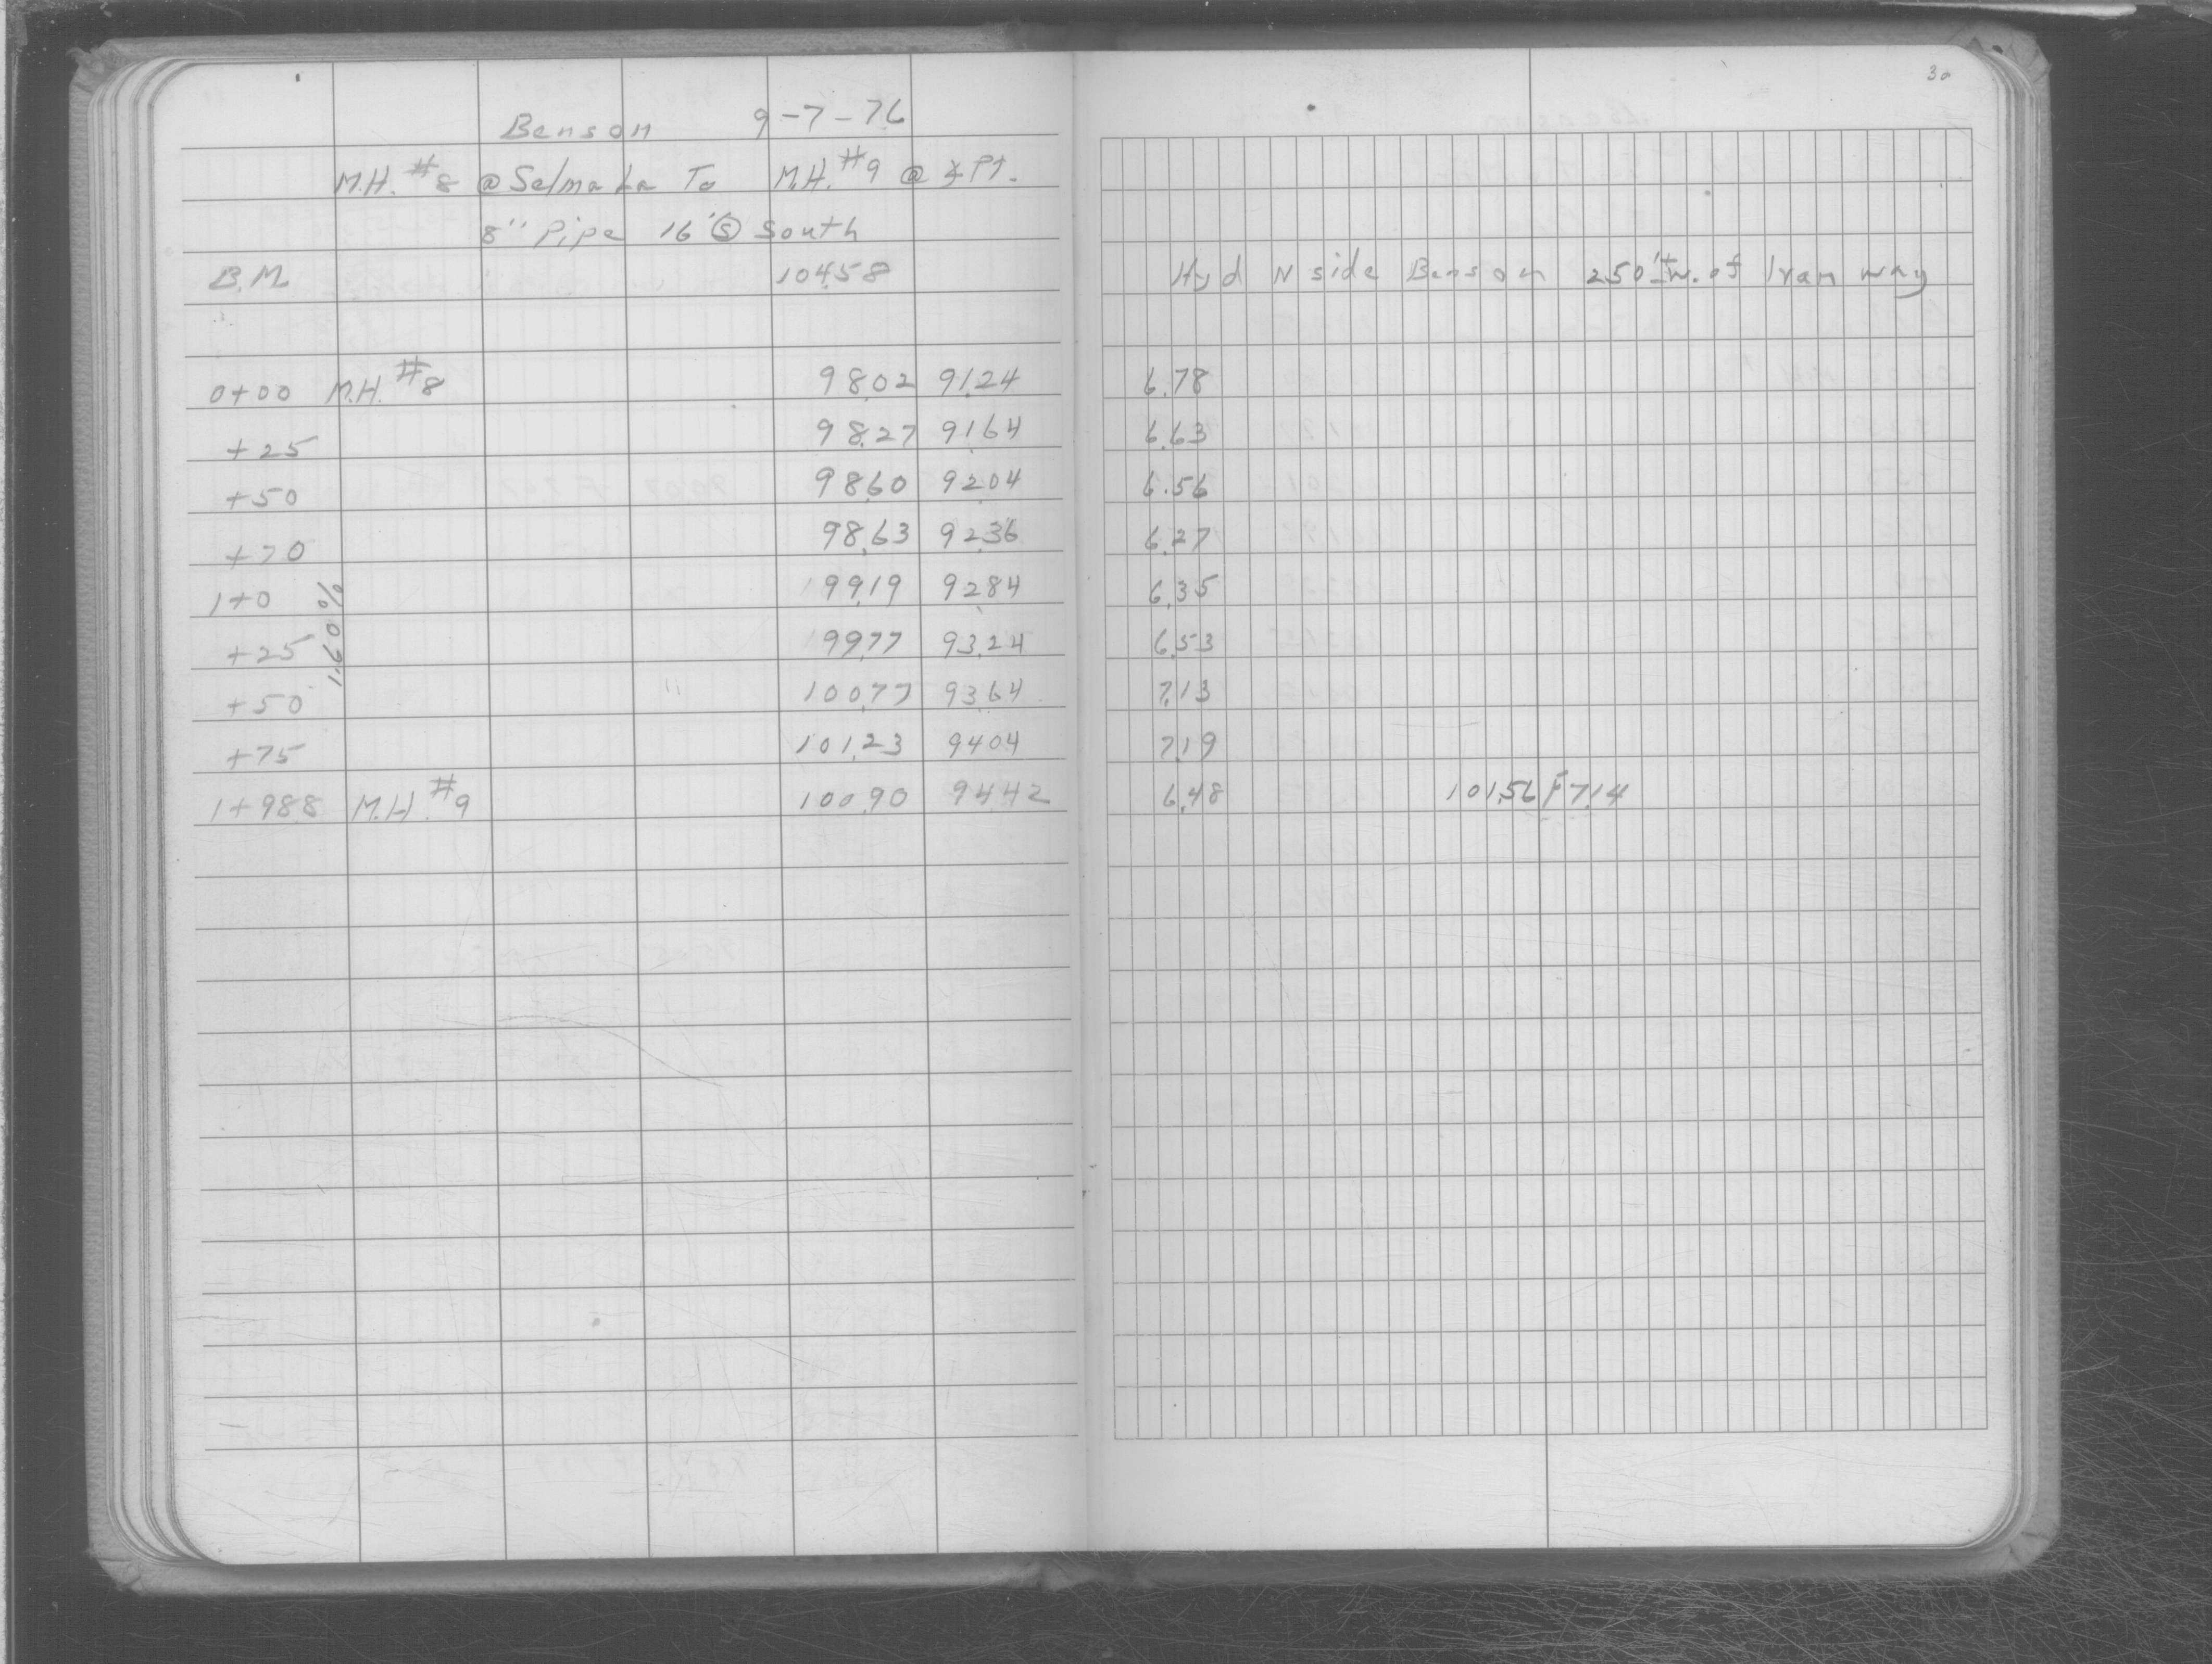 30
Benson 9-7-76
M.H. #8 @ Selma La To M.H. #9 @ ∡ Pt.
8" Pipe 16' Ⓢ South
B.M. 104.58 Hyd N side Benson 250'± W. of Ivan way
0+00 M.H. #8 98.02 91.24 6.78
+25 98.27 91.64 6.63
+50 98.60 92.04 6.56
+70 98.63 92.36 6.27
1+0 99.19 92.84 6.35
+25 99.77 93.24 6.53
+50 100.77 93.64 7.13
+75 101.23 94.04 7.19
1+98.8 M.H. #9 100.90 94.42 6.48 101.56 F 7.14
1.60%